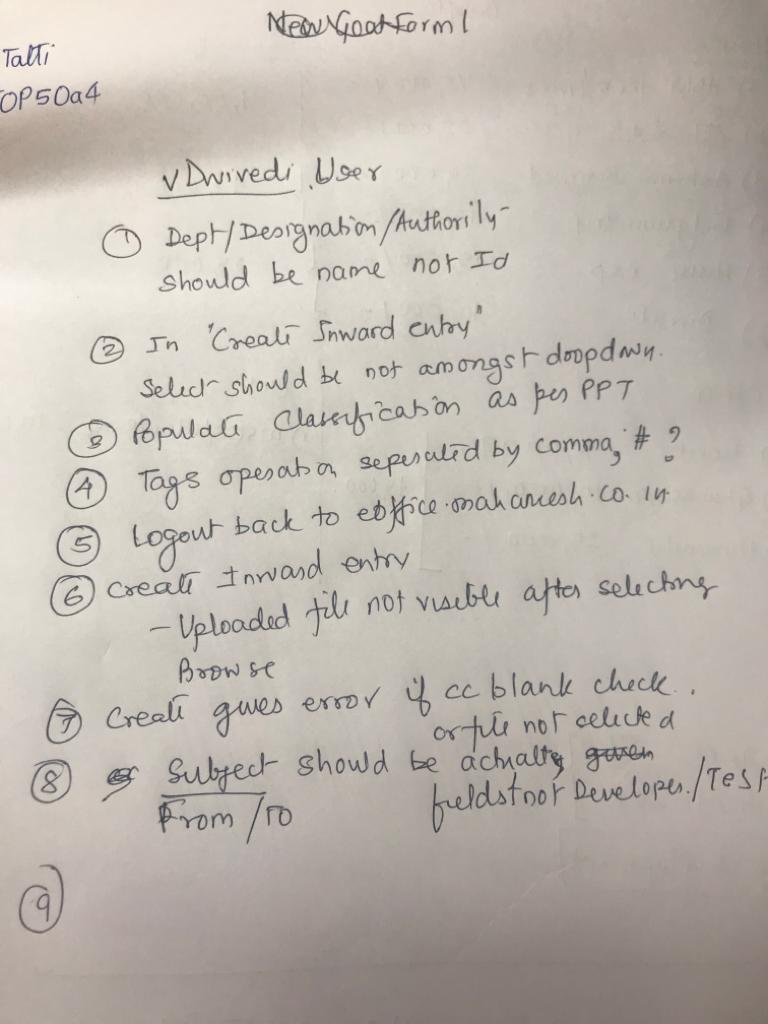 Form 1
Talti
OP50a4
vDwivedi User
① Dept/Designation/Authority-
should be name not Id
② In 'Create Inward entry"
Select should be not amongst doopdown.
③ Populate Classification as per PPT
④ Tags operation seperated by comma, # ?
⑤ Logout back to eoffice.mahamesh.co.in
⑥ Create Inward entry
- Uploaded file not visible after selecting
Browse
⑦ Create gives error if cc blank check.
or file not selected
⑧ Subject should be actually given
From/To fields not Developer./Test
⑨